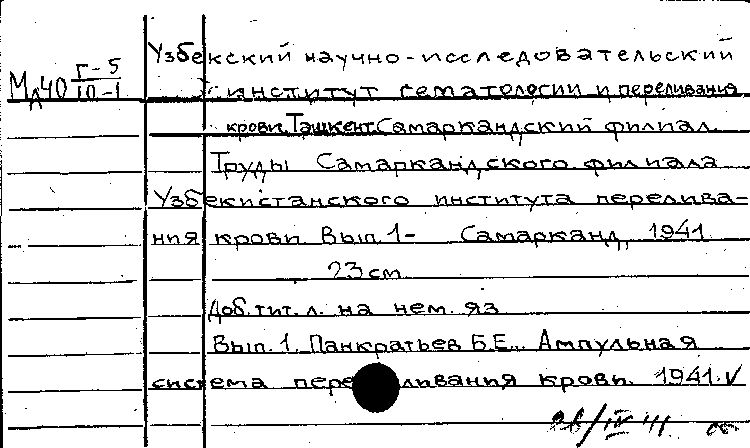 Узбекский научно-исследовательский
Мд40 Г-5/10-1 институт гематологии и переливания
крови. Ташкент. Самаркандский филиал.
Труды Самаркандского филиала
Узбекистанского института перелива-
ния крови. Вып. 1- Самарканд, 1941
23 см
Доб. тит. л. на нем. яз.
Вып. 1. Панкратьев Б.Е. Ампульная
система переливания крови. 1941. V
26/IV 41